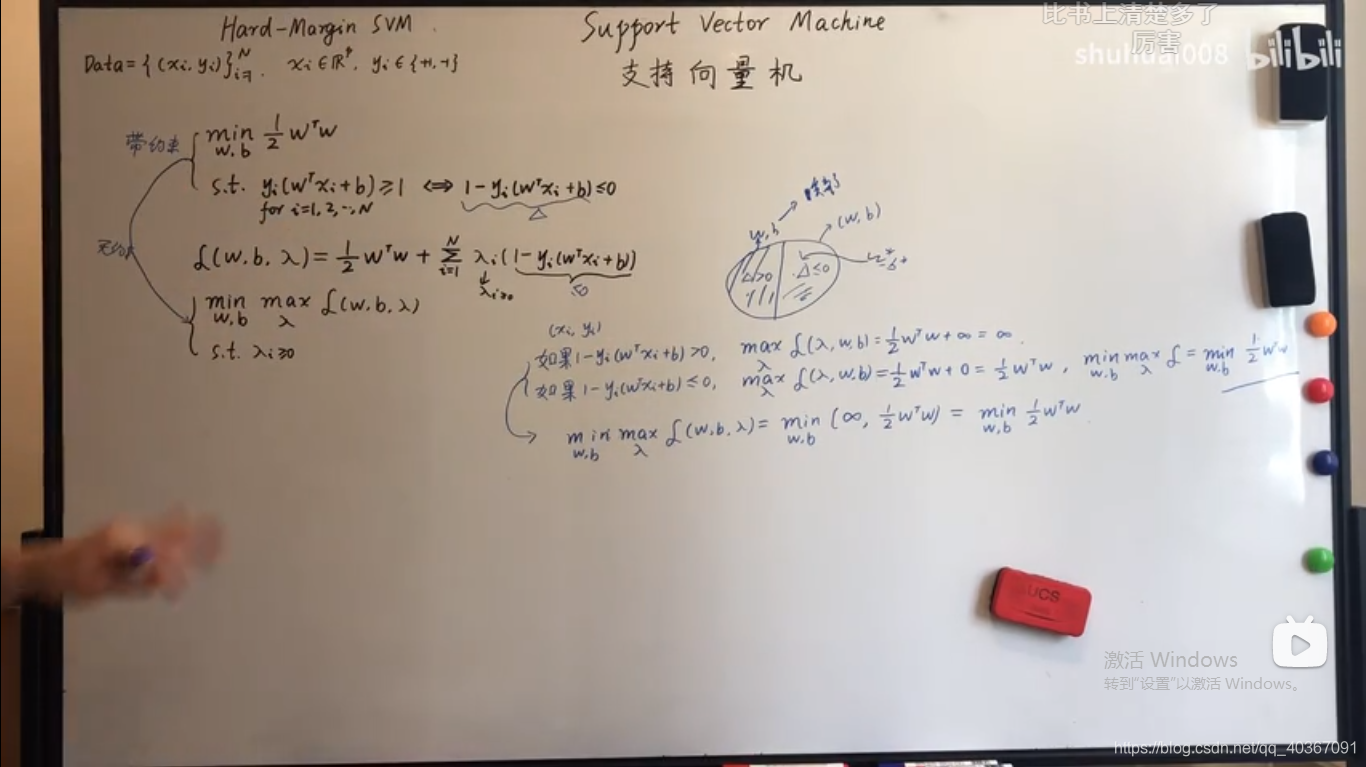 Hard-Margin SVM
Support Vector Machine
比书上清楚多了
厉害
shuhuai008 bilibili
Data={(xi, yi)}ᴺi=1, xi∈ℝᵖ, yi∈{+1,-1}
支持向量机
带约束
min w,b 1/2 wᵀw
s.t. yi(wᵀxi+b)≥1 ⟺ 1-yi(wᵀxi+b)≤0
for i=1,2,…,N
Δ
无约束
ℒ(w,b,λ)=1/2 wᵀw+∑ᴺi=1 λi(1-yi(wᵀxi+b))
λi≥0
≤0
min w,b max λ ℒ(w,b,λ)
s.t. λi≥0
w,b
(w,b)
Δ>0
Δ≤0
(xi, yi)
如果1-yi(wᵀxi+b)>0, max λ ℒ(λ,w,b)=1/2 wᵀw+∞=∞
如果1-yi(wᵀxi+b)≤0, max λ ℒ(λ,w,b)=1/2 wᵀw+0=1/2 wᵀw, min w,b max λ ℒ=min w,b 1/2 wᵀw
min w,b max λ ℒ(w,b,λ)=min w,b (∞, 1/2 wᵀw)=min w,b 1/2 wᵀw
UCS
激活 Windows
转到"设置"以激活 Windows。
https://blog.csdn.net/qq_40367091